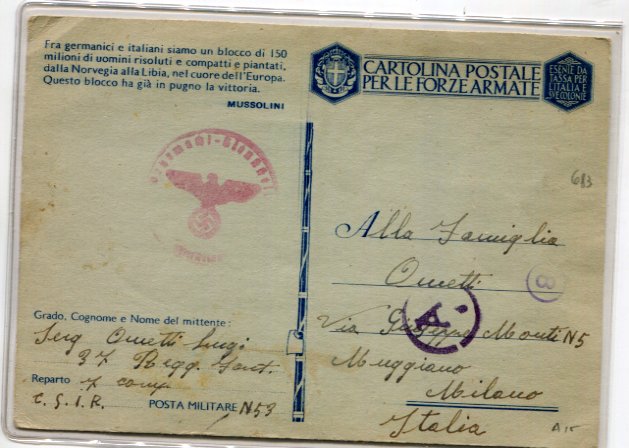 Fra germanici e italiani siamo un blocco di 150
milioni di uomini risoluti e compatti e piantati,
dalla Norvegia alla Libia, nel cuore dell'Europa.
Questo blocco ha già in pugno la vittoria.
MUSSOLINI
CARTOLINA POSTALE
PER LE FORZE ARMATE
ESENTE DA
TASSA PER
L'ITALIA E
SUE COLONIE
613
Alla Famiglia
Ometti
8
Via Giuseppe Monti N5
A.
Muggiano
Milano
Italia
A15
Grado, Cognome e Nome del mittente:
Serg Ometti Luigi
37 Regg. Fant.
Reparto 7 comp
C.S.I.R. POSTA MILITARE N 53